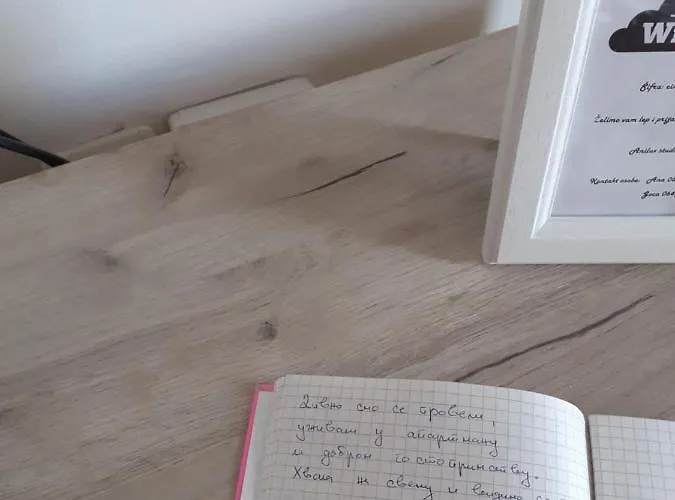 Wi
Šifra:
Želimo vam lep i prija
Anilux studi
Kontakt osobe: Ana 06
Goca 064
Дивно смо се провели,
уживали у апартману
и добром гостопримству.
Хвала на свему и